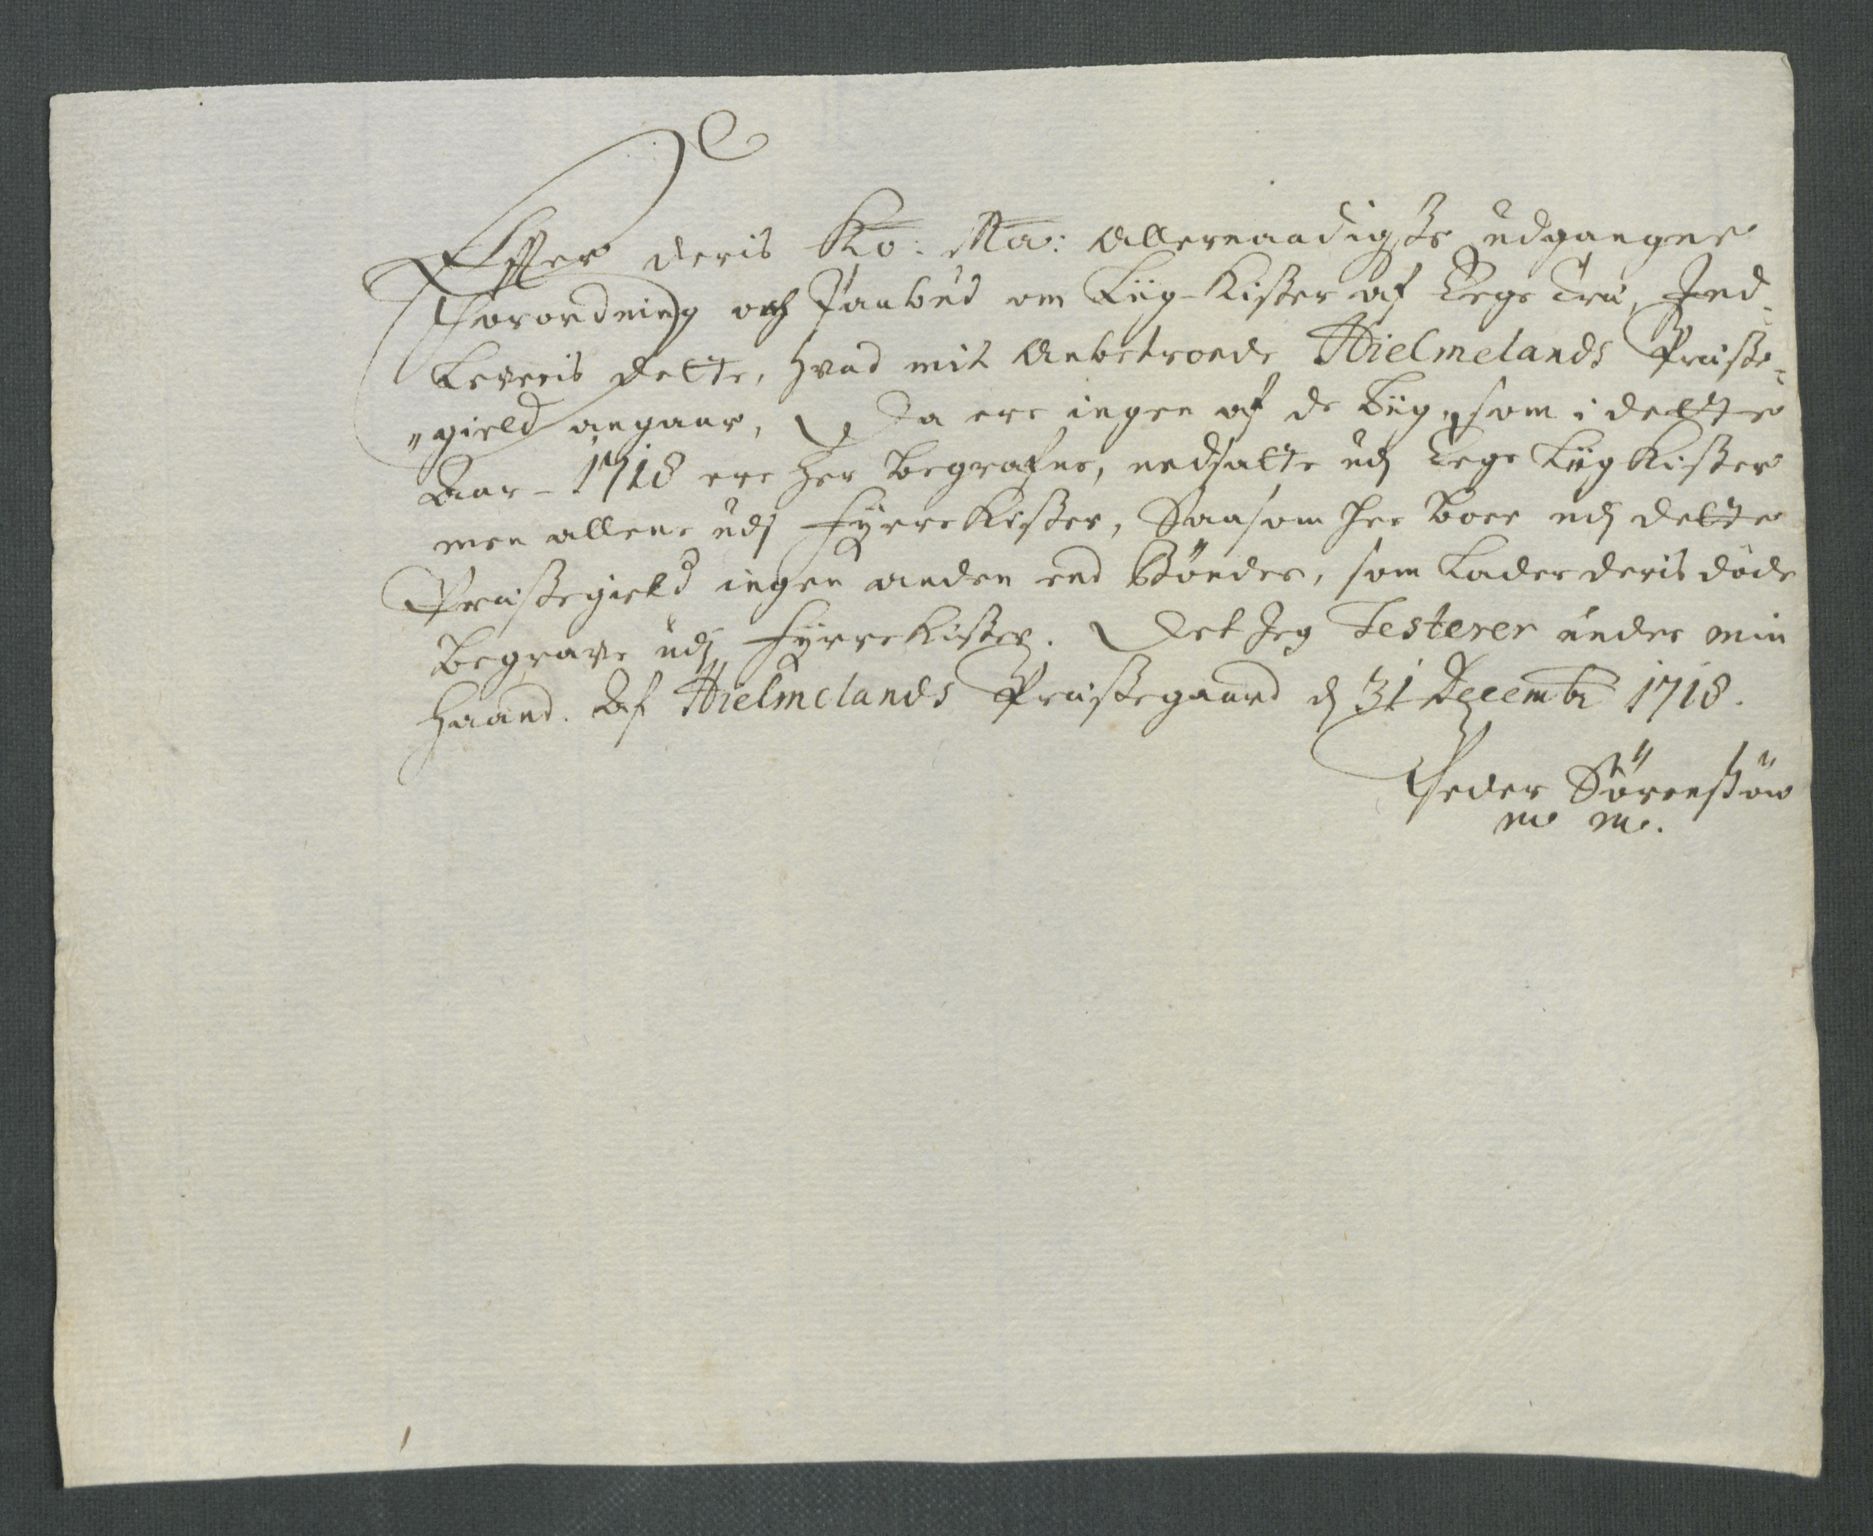 Effter deris Ko: Ma: Allernaadigste udgangne
Forordning och Paabud om Liig-Kister af Eege Træ, Ind-
Leveris dette, hvad mit Anbetroede Hielmelands Præste-
„gield angaar, Da ere ingen af de Liig, som i dette
Aar - 1718 ere her begrafne, nedsatte udj Eege Liig Kister
men allene udj Fyrre Kister, Saasom her boer udj dette
Præstegield ingen anden end Bønder, som lader deris døde
begrave udj Fyrre Kister. Det Jeg Testerer under min
Haand. Af Hielmelands Præstegaard d 31 Decembr 1718.
Peder Sørenssøn
m m.